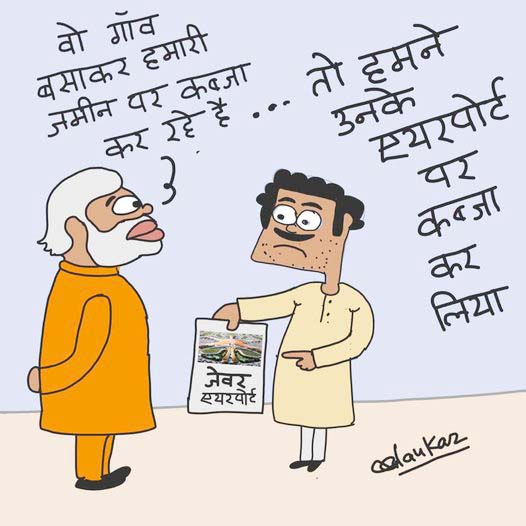 वो गाँव
बसाकर हमारी
जमीन पर कब्जा
कर रहे है ...
तो हमने
उनके
एयरपोर्ट
पर
कब्जा
कर
लिया
जेवर
एयरपोर्ट